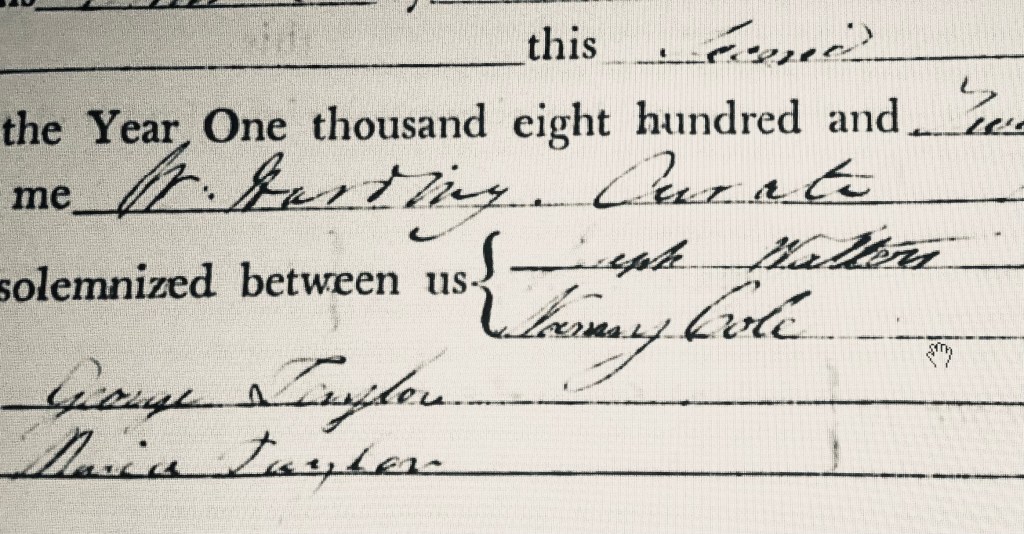 this Second
the Year One thousand eight hundred and
me W. Harding. Curate
solemnized between us
Joseph Walters
Nanny Cole
George Taylor
Maria Taylor